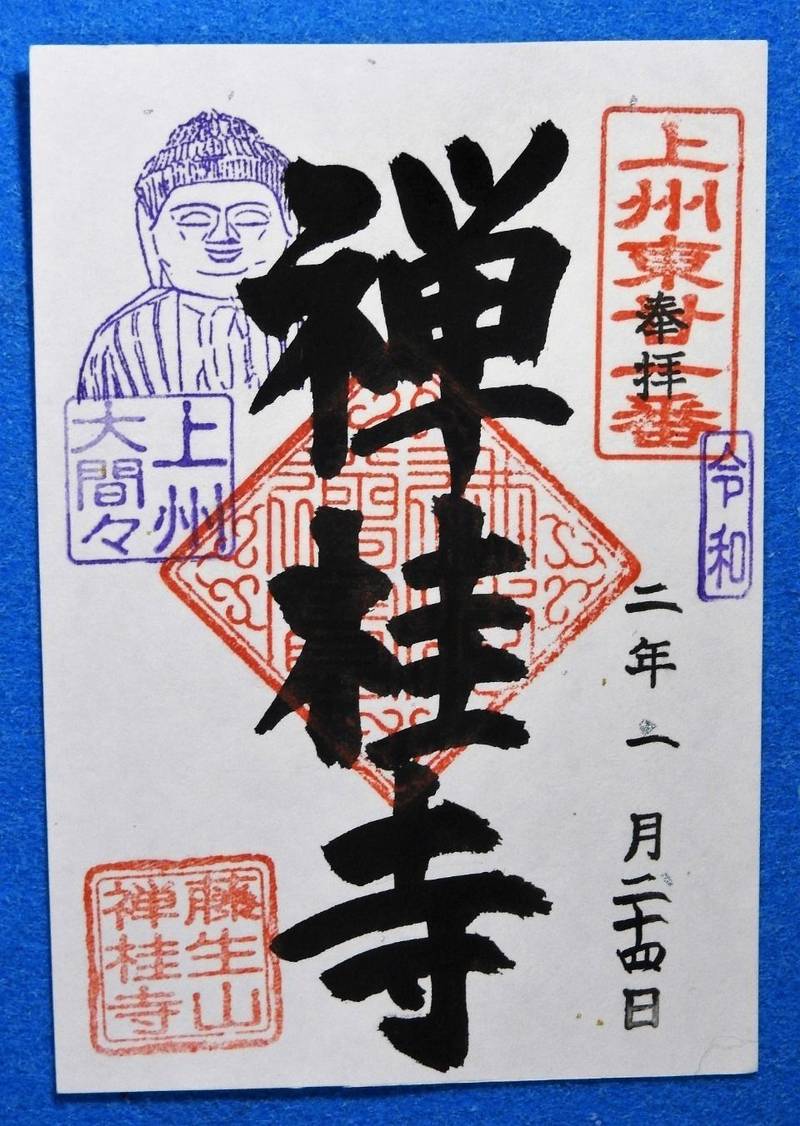 上州東廿
番
奉拝
令和
二年
月二十四日
禅桂寺
上州
大間々
藤生山
禅桂寺